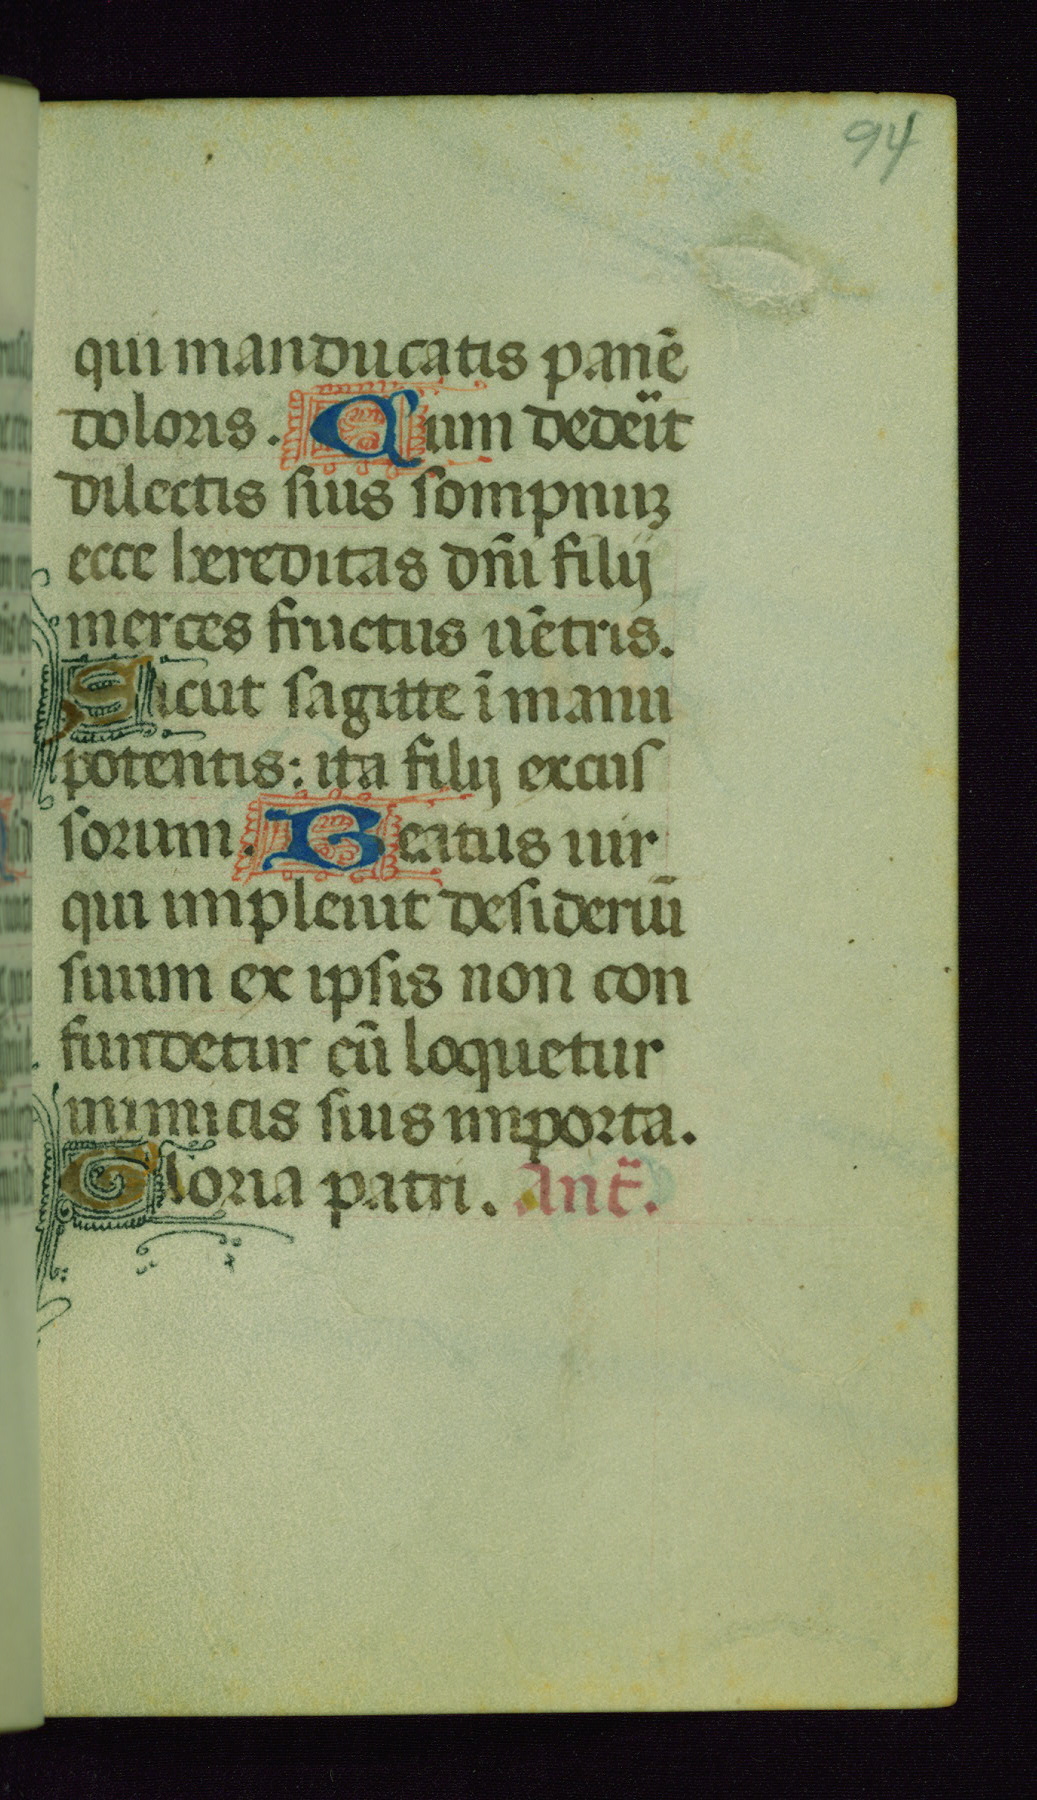 94
qui manducatis panē
doloris. Cum dedeĩt
dilectis suis sompnuꝫ
ecce hereditas dñi filij
merces fructus uētris.
Sicut sagitte ī manu
potentis: ita filij excus
sorum. Beatus uir
qui impleuit desideriū
suum ex ipsis non con
fundetur cū loquetur
inimicis suis in porta.
Gloria patri. Ant̃.